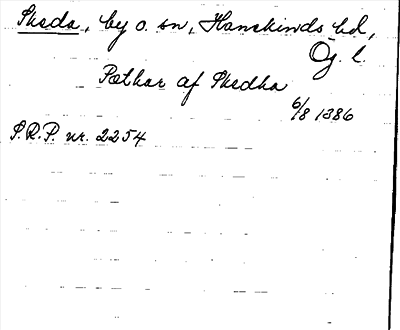 Skeda, by o. sn, Hanekinds hd,
Ög. l.
Pæthar af Skedha
6/8 1386
S.R.P. nr. 2254